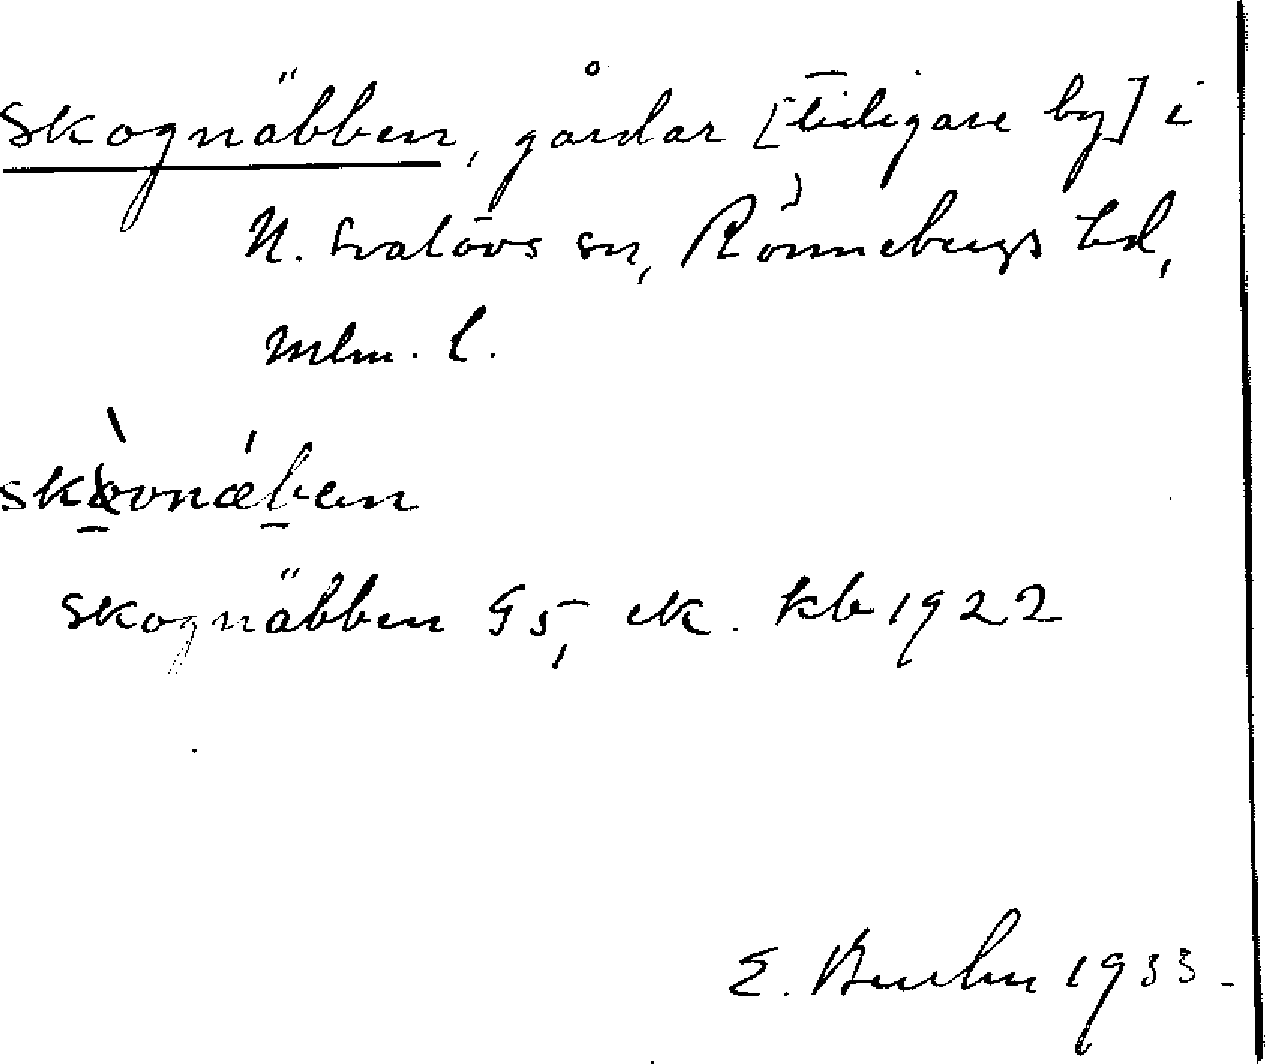 Skognäbben, gårdar [tidigare by] i
N. Svalövs sn, Rönnebergs hd,
Mlm. l.
skòvnǽben
Skognäbben G5, ek. kb 1922
E. 1933.